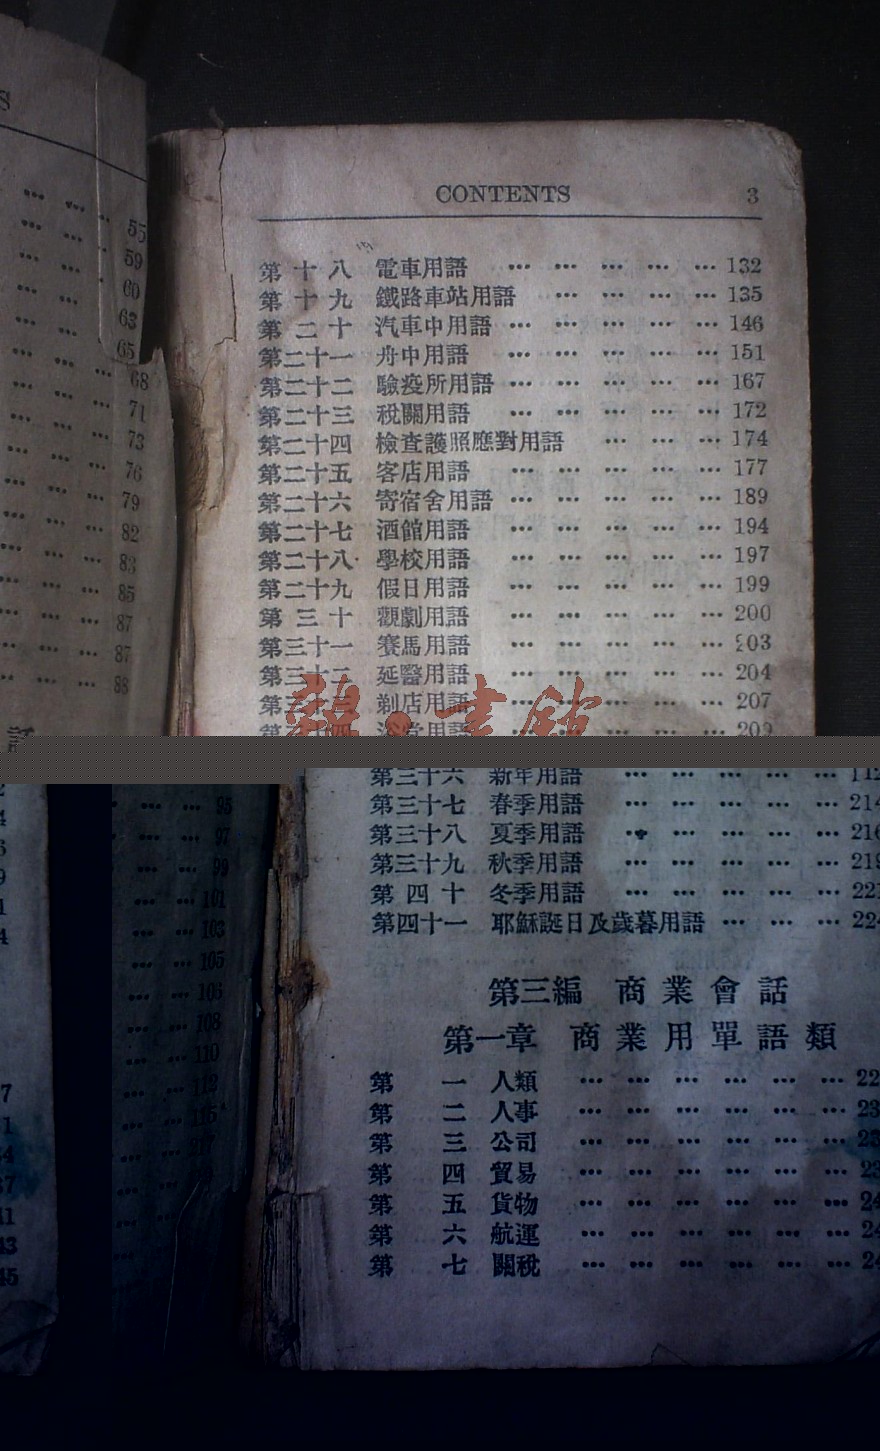 CONTENTS 3
第十八 電車用語 … … … … … 132
第十九 鐵路車站用語 … … … … 135
第二十 汽車中用語 … … … … … 146
第二十一 舟中用語 … … … … … 151
第二十二 驗疫所用語 … … … … … 167
第二十三 稅關用語 … … … … … 172
第二十四 檢查護照應對用語 … … … 174
第二十五 客店用語 … … … … … 177
第二十六 寄宿舍用語 … … … … … 189
第二十七 酒館用語 … … … … … 194
第二十八 學校用語 … … … … … 197
第二十九 假日用語 … … … … … 199
第三十 觀劇用語 … … … … … 200
第三十一 賽馬用語 … … … … … 203
第三十二 延醫用語 … … … … … 204
第三十三 剃店用語 … … … … … 207
第三十四 浴堂用語 … … … … … 209
第三十六 新年用語 … … … … … 112
第三十七 春季用語 … … … … … 214
第三十八 夏季用語 … … … … … 216
第三十九 秋季用語 … … … … … 219
第四十 冬季用語 … … … … … 221
第四十一 耶穌誕日及歲暮用語 … … … 224
第三編 商業會話
第一章 商業用單語類
第一 人類 … … … … … … 22
第二 人事 … … … … … … 23
第三 公司 … … … … … … 23
第四 貿易 … … … … … … 23
第五 貨物 … … … … … … 24
第六 航運 … … … … … … 24
第七 關稅 … … … … … … 24
55
59
60
63
65
68
71
73
76
79
82
83
85
87
87
88
話
95
97
99
101
103
105
106
108
110
112
115
117